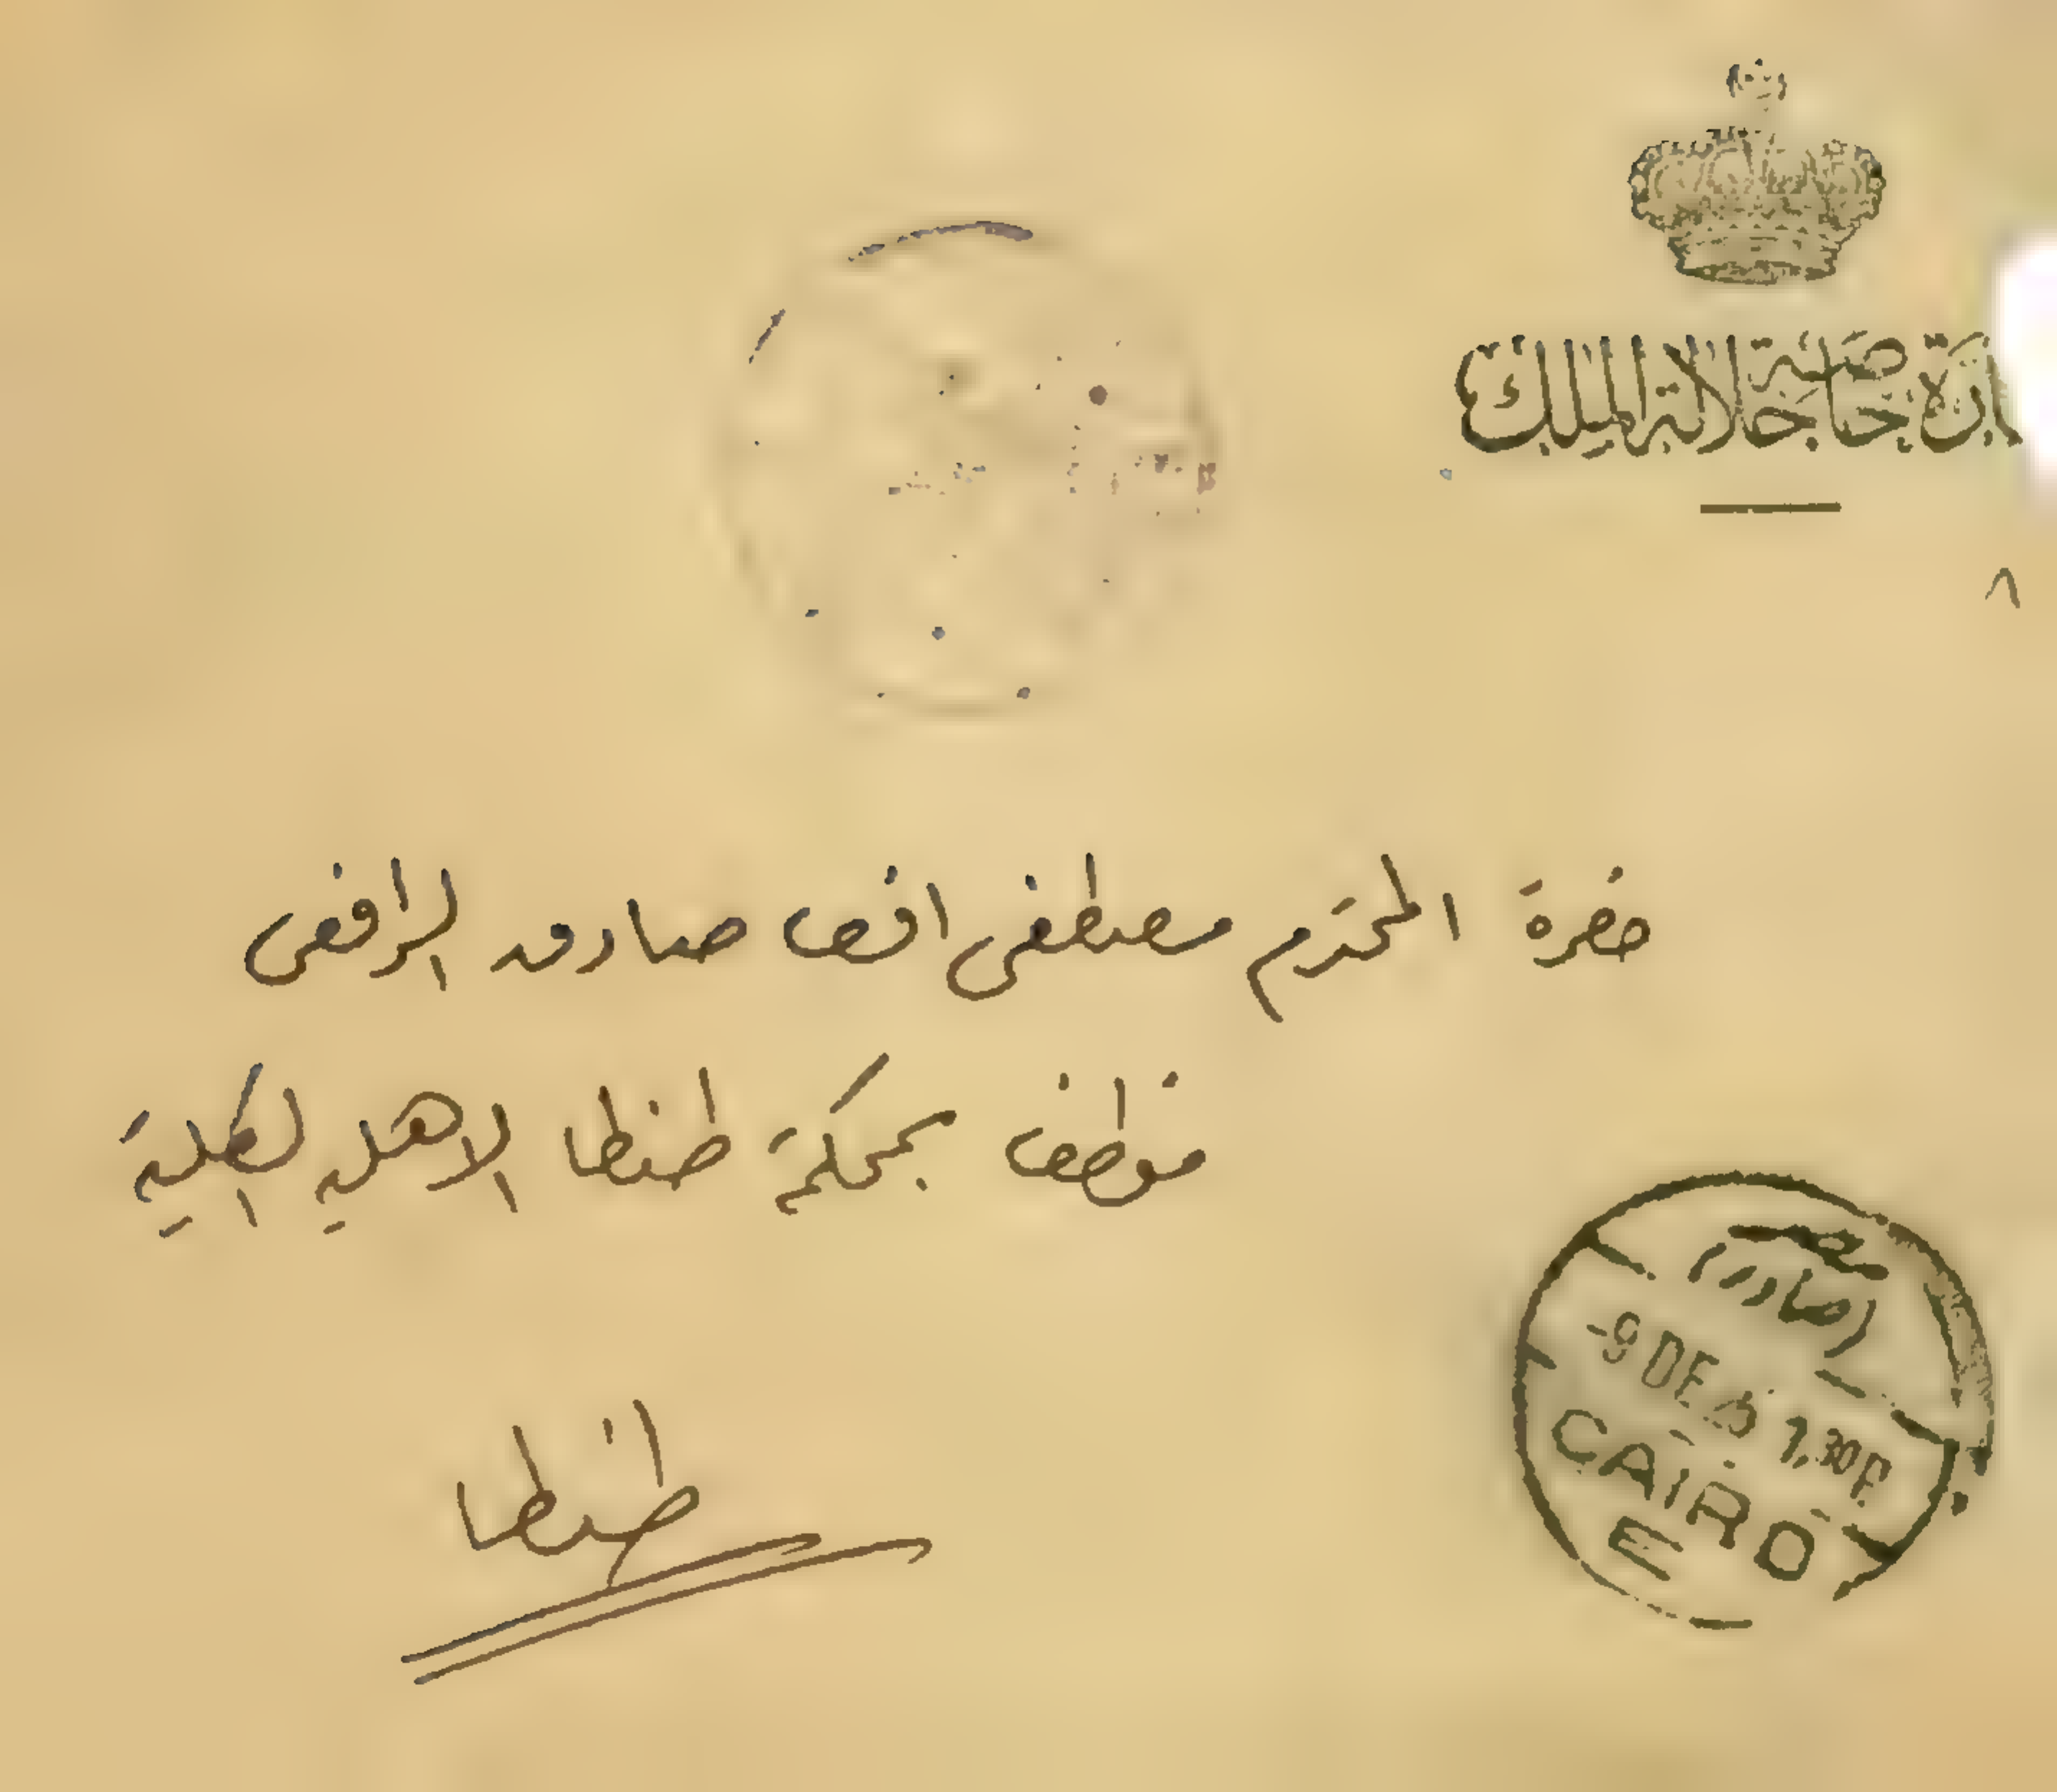 إدارة خاصة جلالة الملك
٨
حضرة المحترم مصطفى افندى صادق الرافعى
موظف بمحكمة طنطا الاهلية الكلية
طنطا
مصر
(صادر)
-9 DE 7.30 P.
CAIRO
E